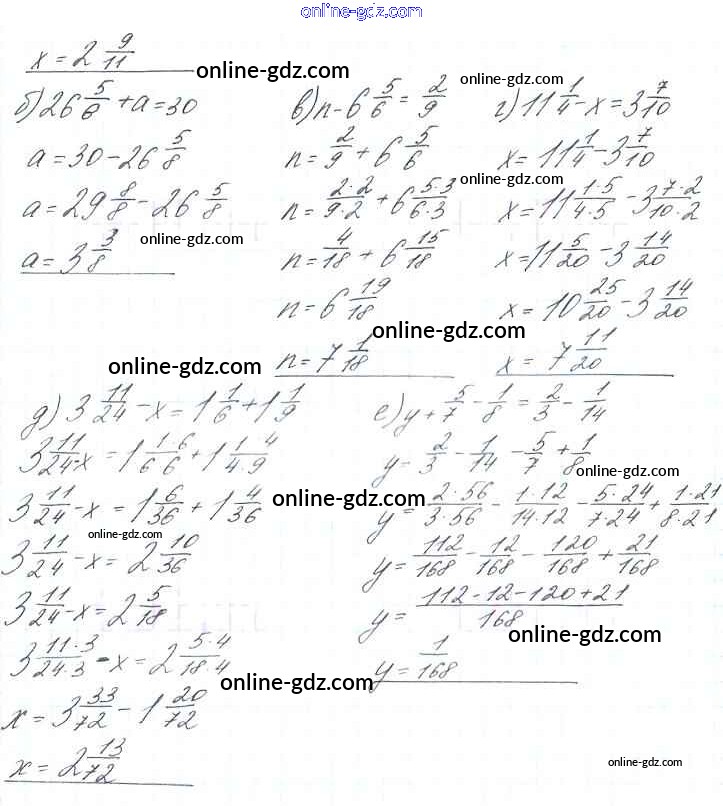 online-gdz.com
x = 2 9/11
online-gdz.com
б) 26 5/8 + a = 30
a = 30 - 26 5/8
a = 29 8/8 - 26 5/8
a = 3 3/8
online-gdz.com
в) n - 6 5/6 = 2/9
n = 2/9 + 6 5/6
n = 2·2/9·2 + 6 5·3/6·3
n = 4/18 + 6 15/18
n = 6 19/18
n = 7 1/18
online-gdz.com
г) 11 1/4 - x = 3 7/10
x = 11 1/4 - 3 7/10
online-gdz.com
x = 11 1·5/4·5 - 3 7·2/10·2
x = 11 5/20 - 3 14/20
x = 10 25/20 - 3 14/20
online-gdz.com
x = 7 11/20
online-gdz.com
д) 3 11/24 - x = 1 1/6 + 1 1/9
3 11/24 - x = 1 1·6/6·6 + 1 1·4/4·9
3 11/24 - x = 1 6/36 + 1 4/36
online-gdz.com
3 11/24 - x = 2 10/36
online-gdz.com
3 11/24 - x = 2 5/18
3 11·3/24·3 - x = 2 5·4/18·4
online-gdz.com
x = 3 33/72 - 1 20/72
x = 2 13/72
е) y + 5/7 - 1/8 = 2/3 - 1/14
y = 2/3 - 1/14 - 5/7 + 1/8
online-gdz.com
y = 2·56/3·56 - 1·12/14·12 - 5·24/7·24 + 1·21/8·21
y = 112/168 - 12/168 - 120/168 + 21/168
y = 112-12-120+21/168
online-gdz.com
y = 1/168
online-gdz.com